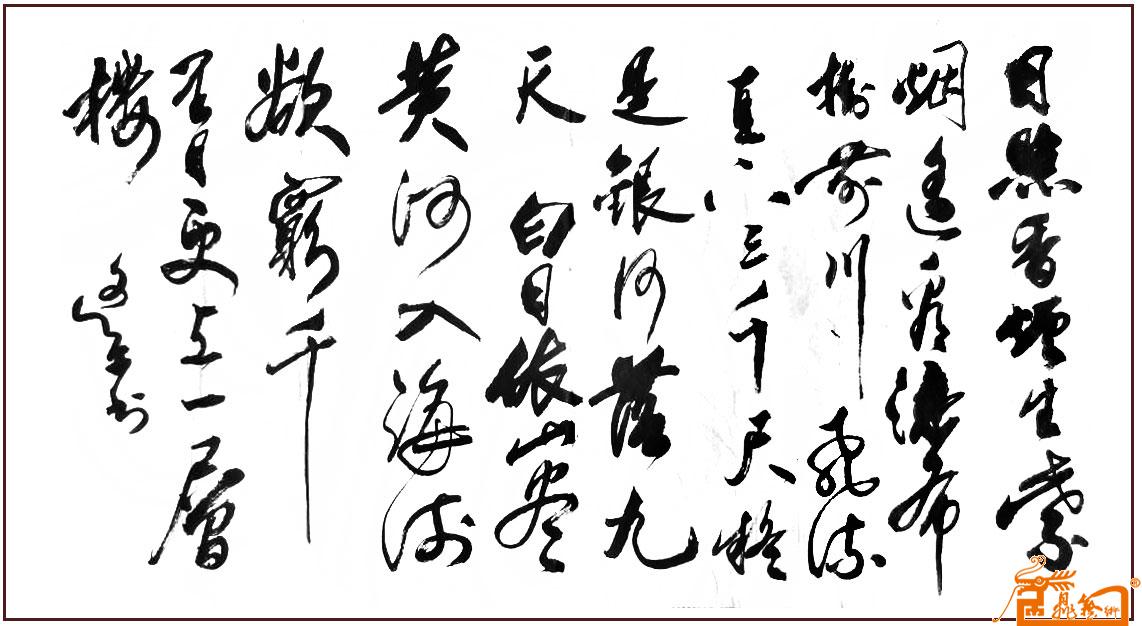 日照香爐生紫
烟遥看瀑布
挂前川飛流
直下三千尺疑
是銀河落九
天白日依山尽
黄河入海流
欲窮千
里目更上一層
樓